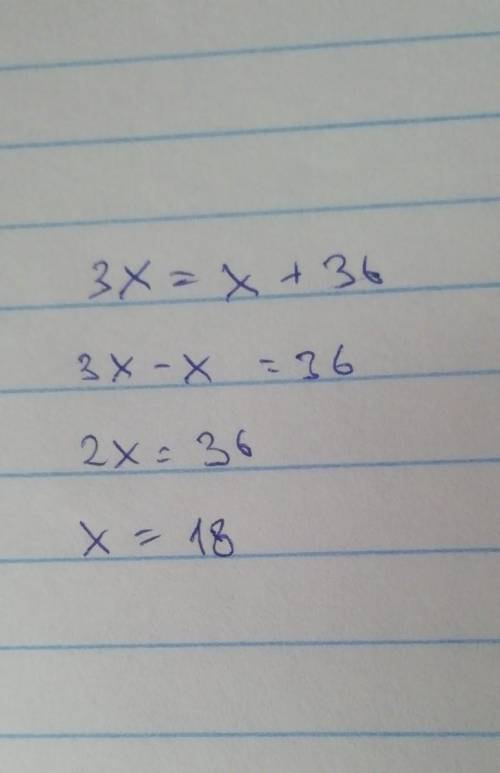 3x = x + 36
3x - x = 36
2x = 36
x = 18